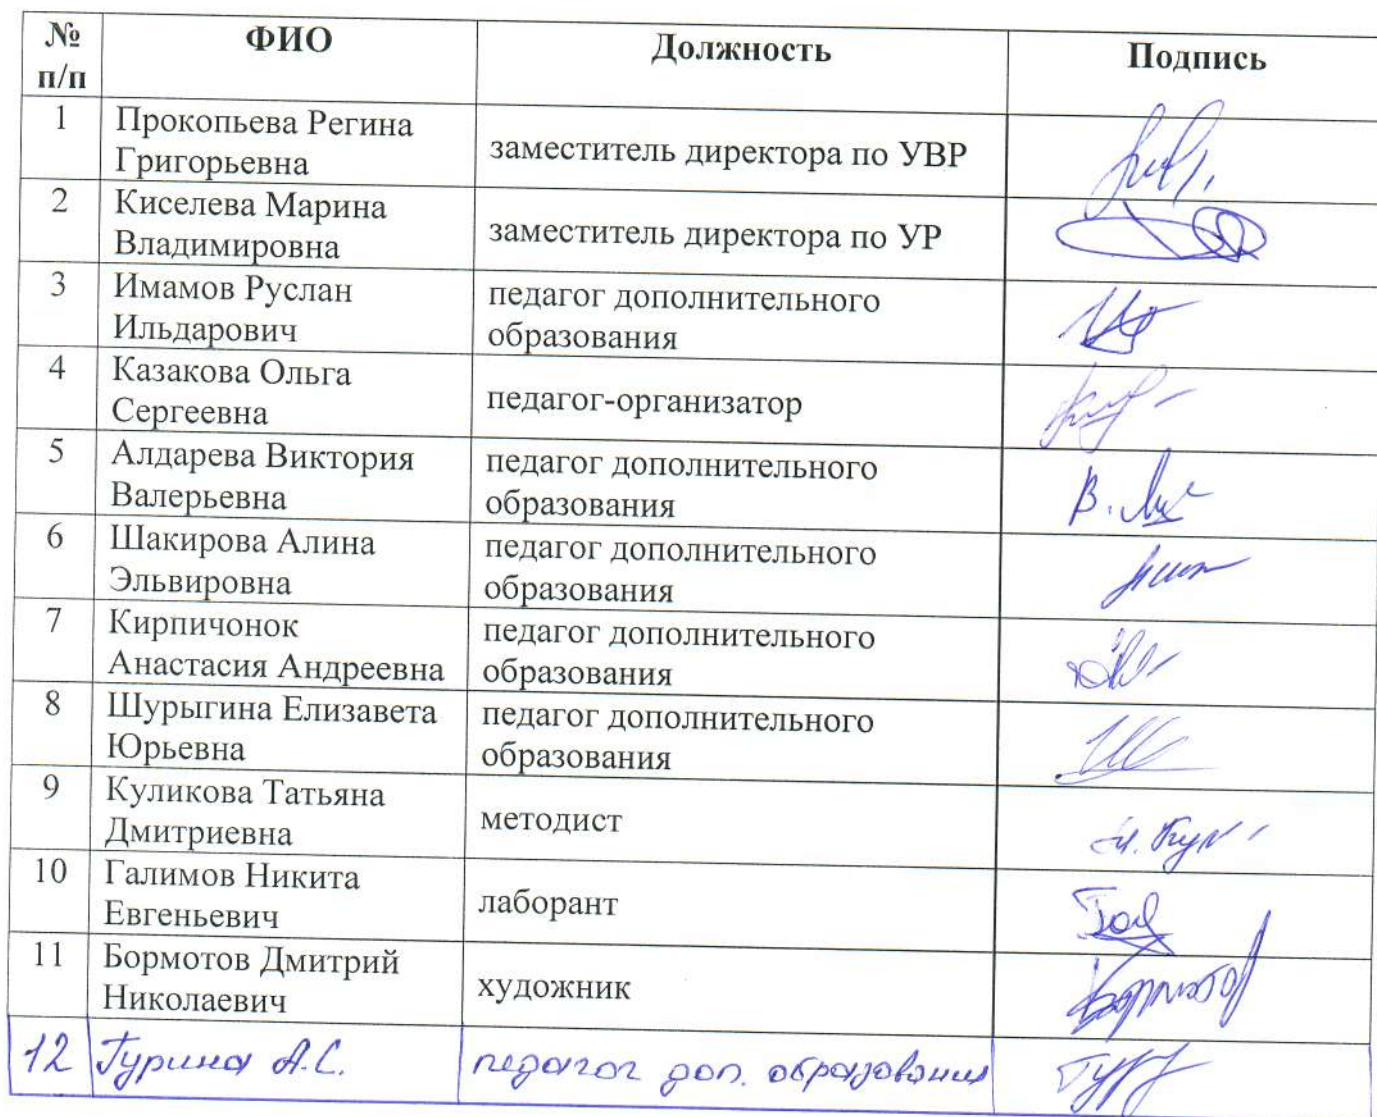 № ФИО Должность Подпись
п/п
1 Прокопьева Регина
Григорьевна заместитель директора по УВР
2 Киселева Марина
Владимировна заместитель директора по УР
3 Имамов Руслан педагог дополнительного
Ильдарович образования
4 Казакова Ольга
Сергеевна педагог-организатор
5 Алдарева Виктория педагог дополнительного
Валерьевна образования
6 Шакирова Алина педагог дополнительного
Эльвировна образования
7 Кирпичонок педагог дополнительного
Анастасия Андреевна образования
8 Шурыгина Елизавета педагог дополнительного
Юрьевна образования
9 Куликова Татьяна
Дмитриевна методист
10 Галимов Никита
Евгеньевич лаборант
11 Бормотов Дмитрий
Николаевич художник
12 Гурина А.С. педагог доп. образования